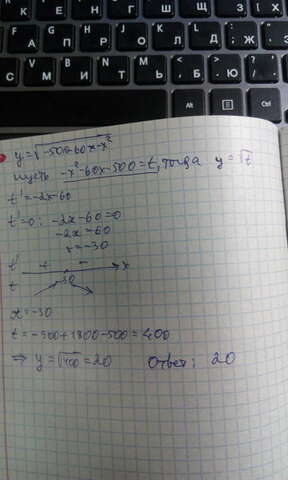 Г Н Ш Щ З
А П Р О Л Д Ж
С М И Т Ь Б Ю
y=√-500-60x-x²
пусть -x²-60x-500=t, тогда y=√t
t'=-2x-60
t'=0; -2x-60=0
-2x=60
x=-30
t' + - x
t -30
x=-30
t=-900+1800-500=400
⇒ y=√400=20 Ответ: 20